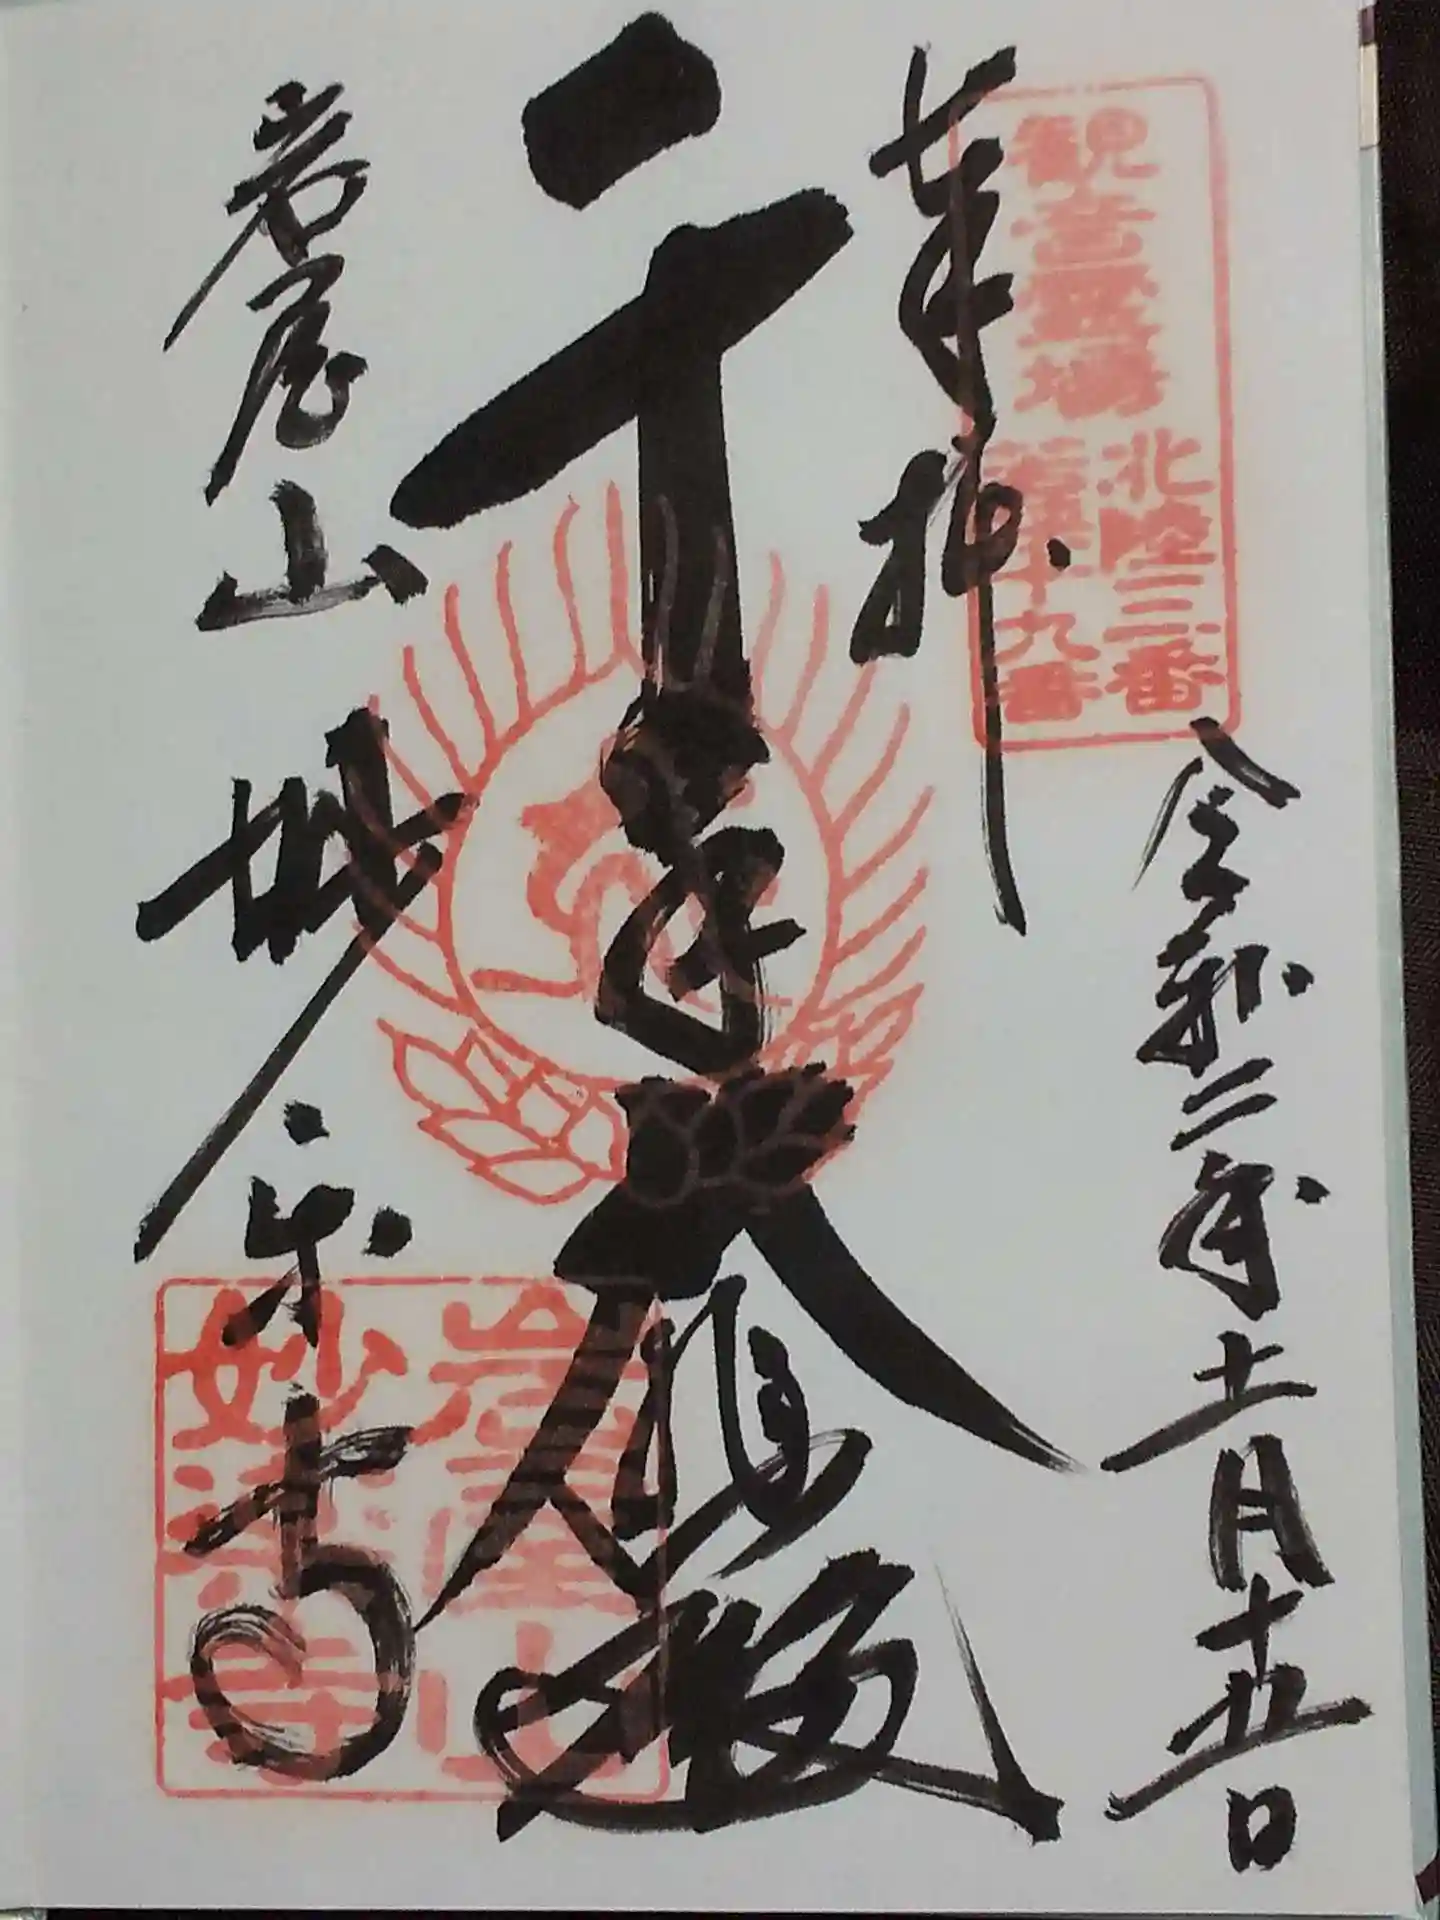 観音霊場
北陸三番
若狭十九番
奉拝
令和二年十一月十五日
千手大悲殿
岩屋山
妙楽寺
岩屋山
妙楽寺